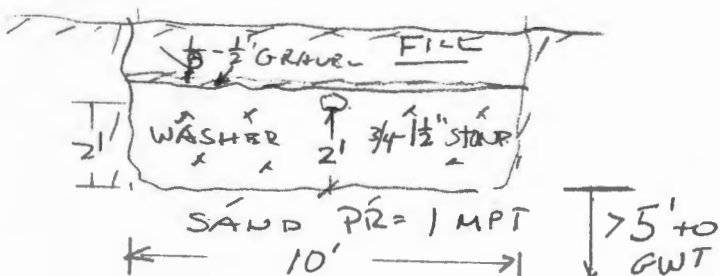 1/8 - 1/2" GRAVEL FILL
2' WASHED 2' 3/4-1 1/2" STONE
SAND PR = 1 MPI
10'
>5' to
GWT